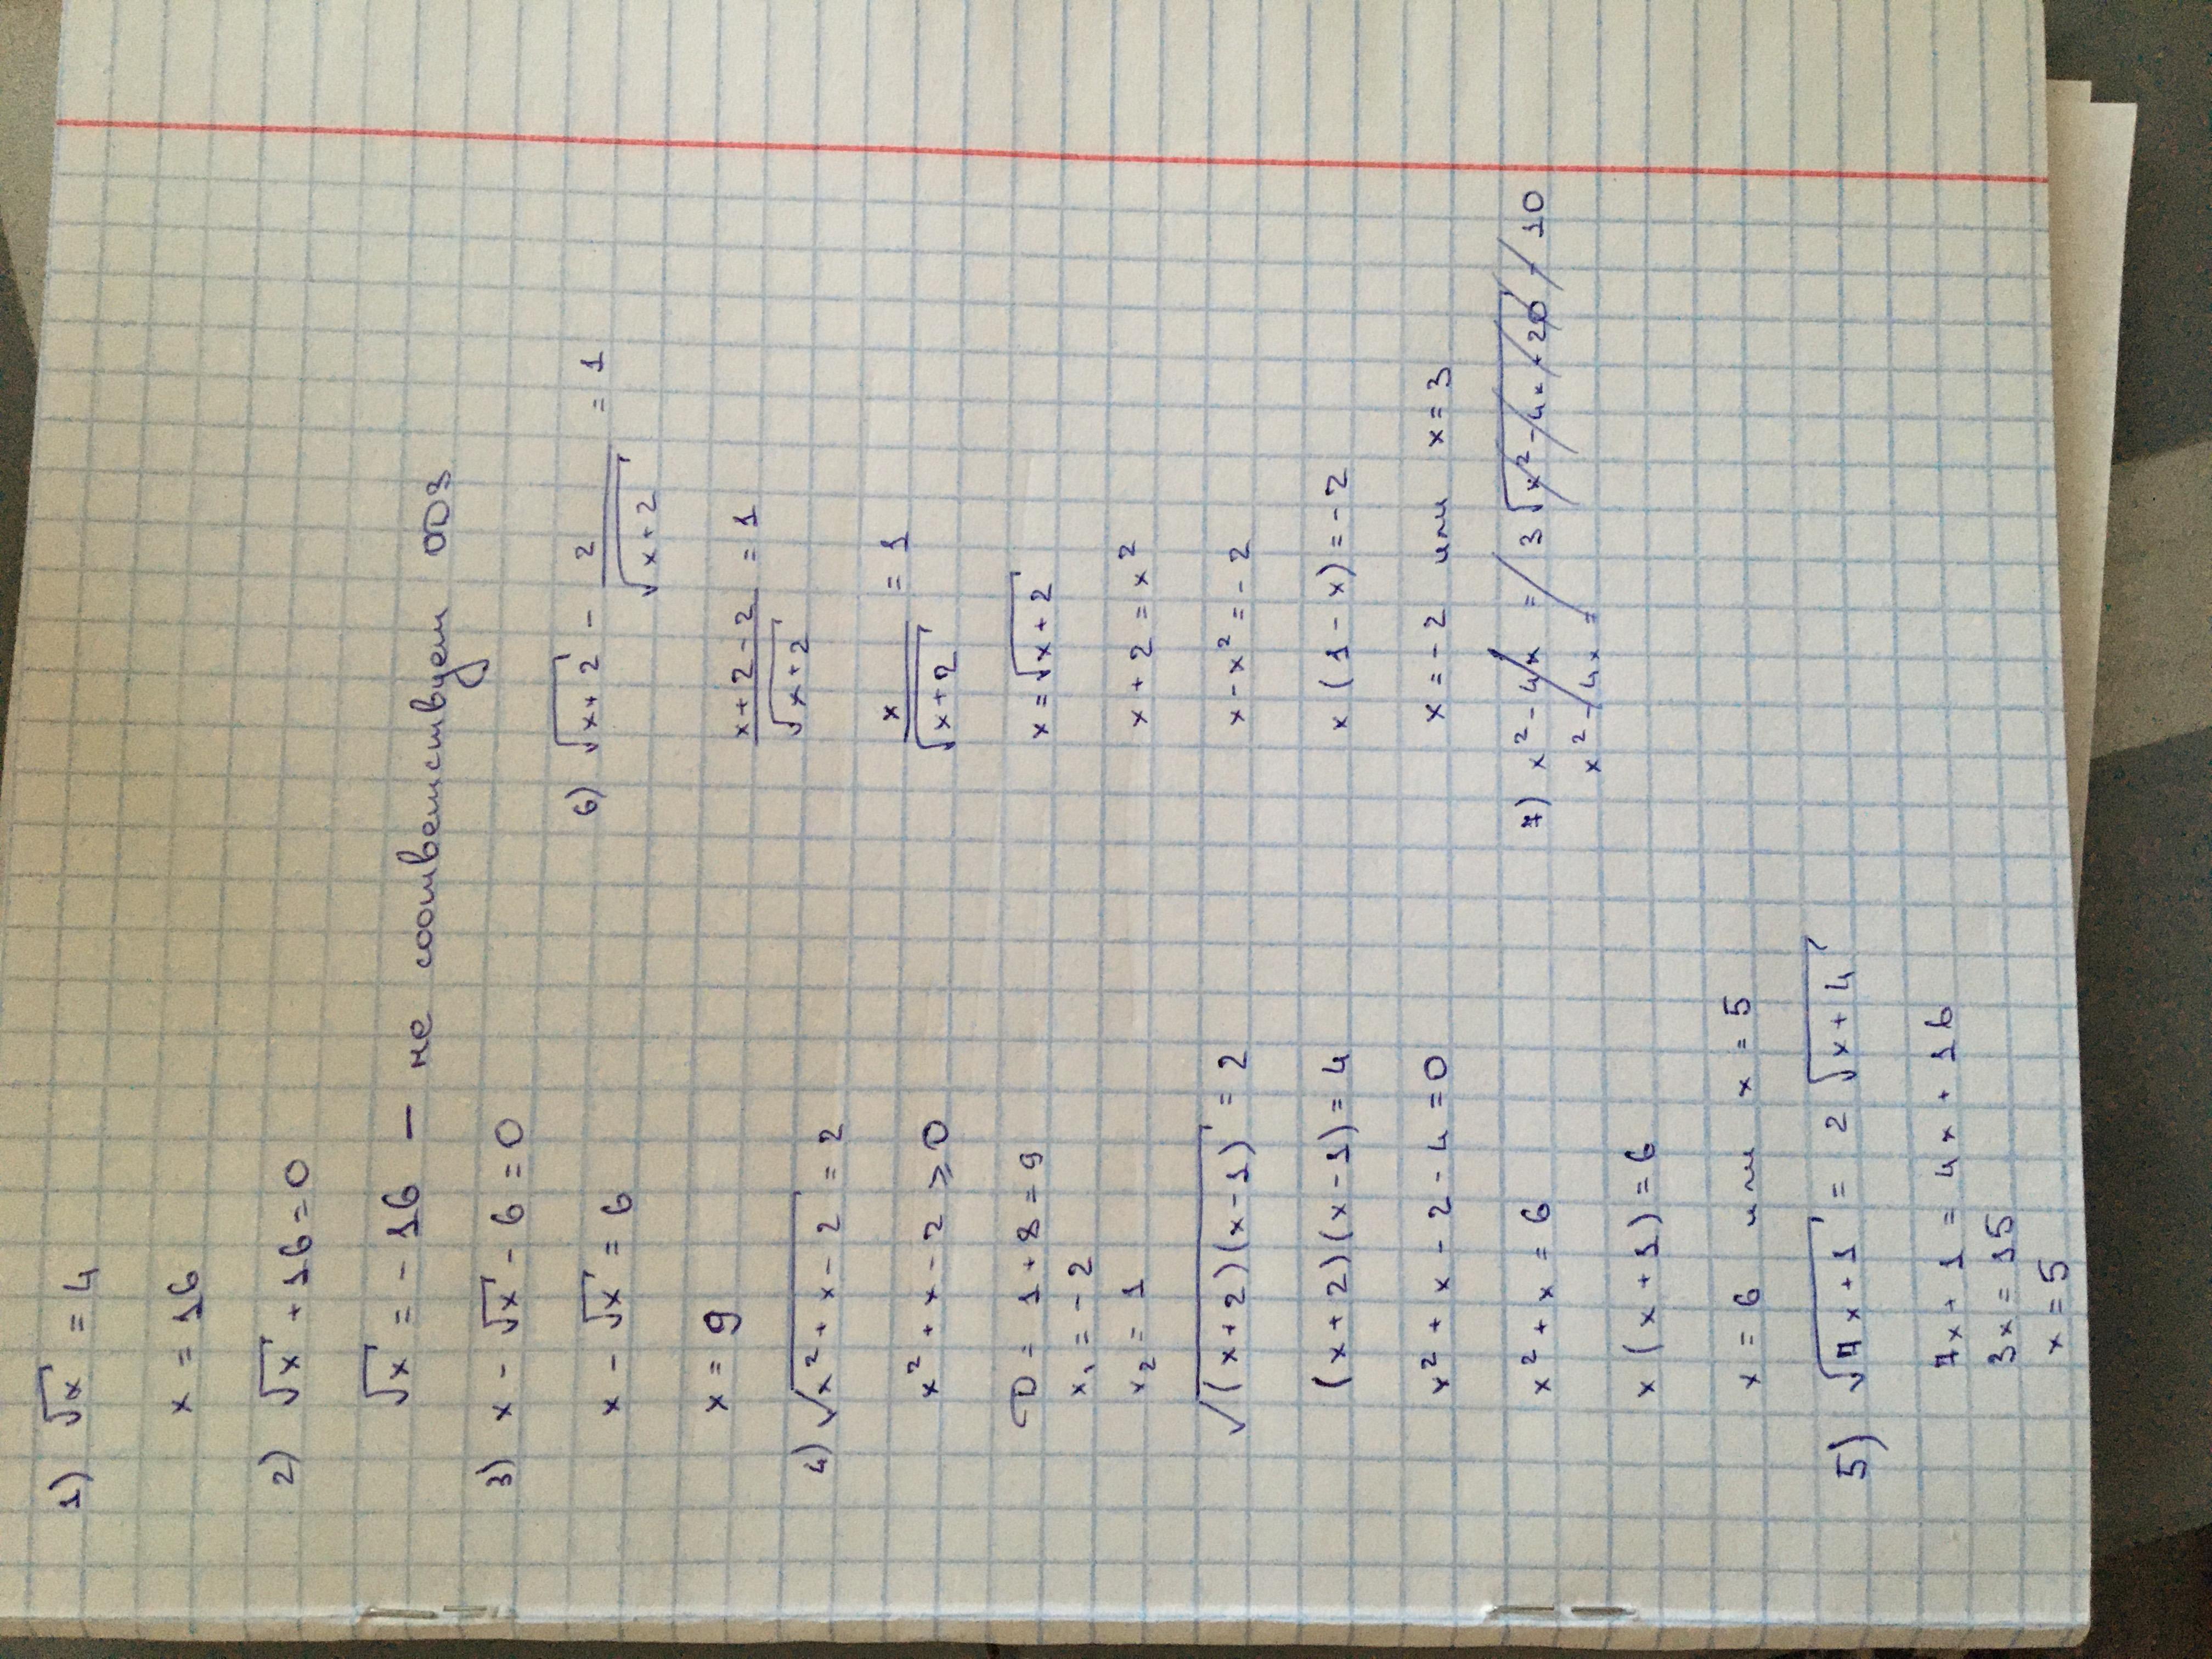 1) √x = 4
x = 16
2) √x + 16 = 0
√x = - 16 — не соответствует ОДЗ
3) x - √x - 6 = 0
x - √x = 6
x = 9
4) √(x² + x - 2) = 2
x² + x - 2 ⩾ 0
D = 1 + 8 = 9
x₁ = - 2
x₂ = 1
√((x + 2)(x - 1)) = 2
(x + 2)(x - 1) = 4
x² + x - 2 - 4 = 0
x² + x = 6
x (x + 1) = 6
x = 6 или x = 5
5) √(7x + 1) = 2 √(x + 4)
7x + 1 = 4x + 16
3x = 15
x = 5
6) √(x + 2) - 2/√(x + 2) = 1
(x + 2 - 2)/√(x + 2) = 1
x/√(x + 2) = 1
x = √(x + 2)
x + 2 = x²
x - x² = - 2
x (1 - x) = - 2
x = - 2 или x = 3
7) x² - 4x = 3 √(x² - 4x + 20) - 10
x² - 4x =